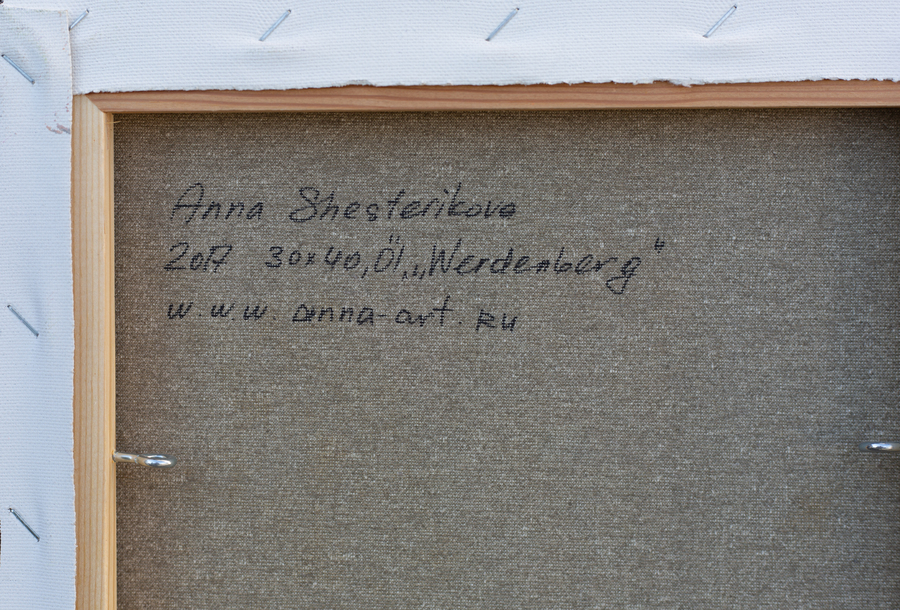 Anna Shesterikova
2017 30x40, Öl, „Werdenberg“
w.w.w. anna-art.ru